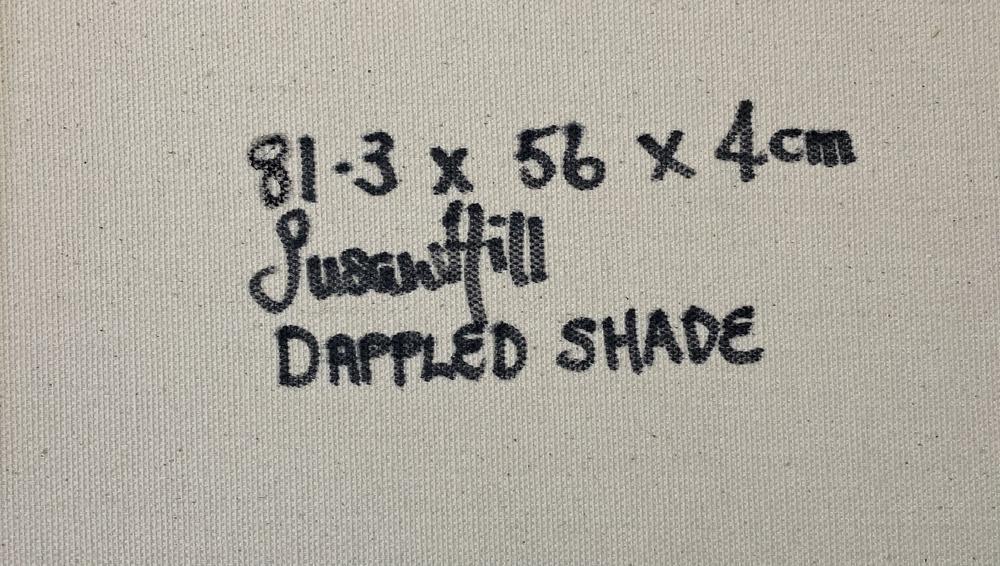 81·3 x 56 x 4cm
Susan Hill
DAPPLED SHADE